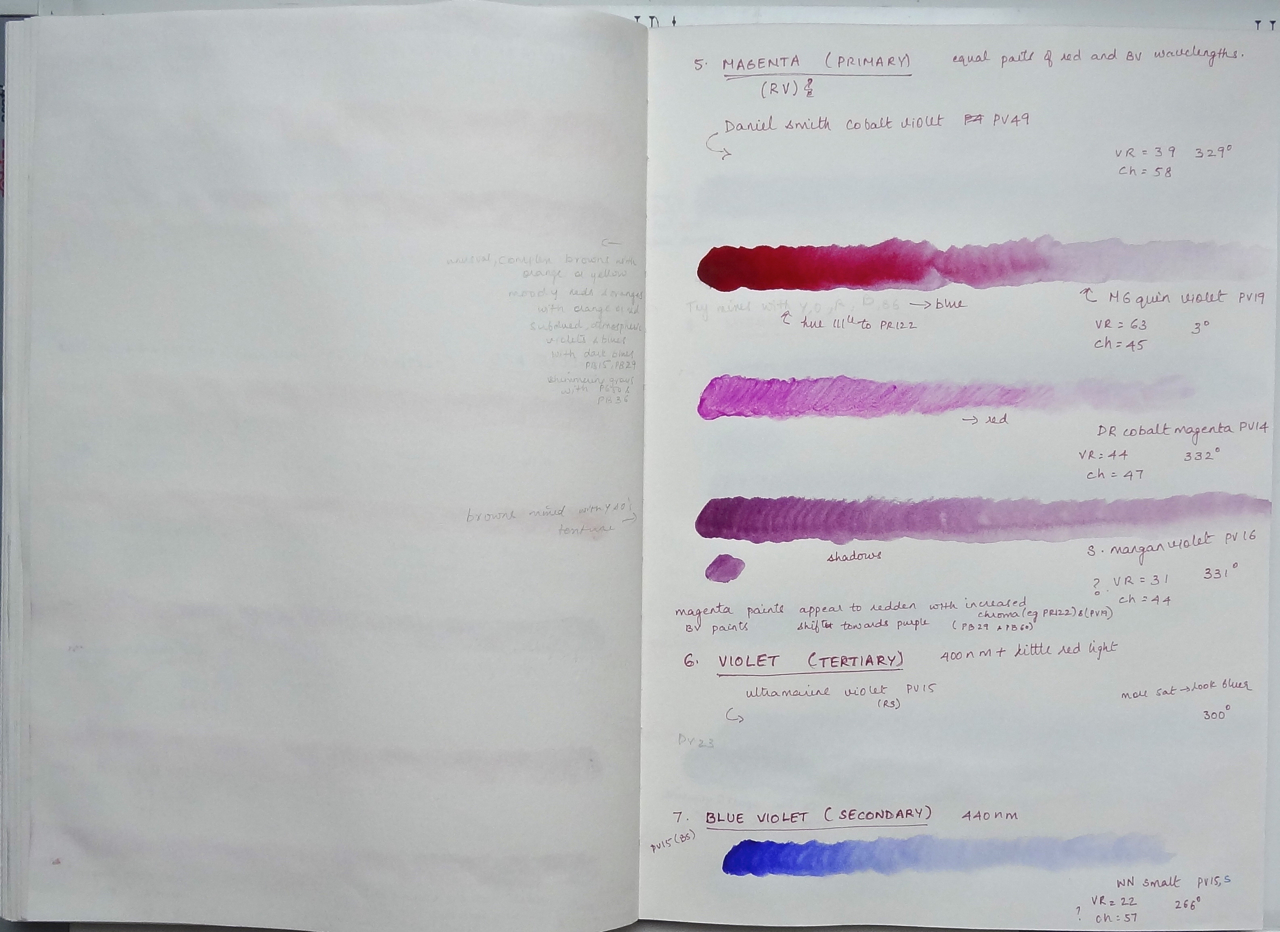 unusual, complex browns with
orange or yellow
moody reds & oranges
with orange or red
subdued, atmospheric
violets & blues
with dark blues
PB15, PB29
shimmering grays
with PG50 &
PB36
browns mixed with
texture
5. MAGENTA (PRIMARY) equal parts of red and BV wavelengths.
(RV)
Daniel smith cobalt violet PV49
VR = 39 329°
ch = 58
Try mixes with Y, O,
→ blue
MG quin violet PV19
hue lll to PR122
VR = 63 3°
ch = 45
→ red
DR cobalt magenta PV14
VR = 44 332°
ch = 47
shadows
S. mangan violet PV16
? VR = 31 331°
ch = 44
magenta paints appear to redden with increased
chroma (eg PR122) & (PV19)
BV paints shift towards purple (PB29 & PB60)
6. VIOLET (TERTIARY) 400nm + little red light
ultramarine violet PV15
(RS)
more sat → look bluer
300°
PV23
7. BLUE VIOLET (SECONDARY) 440nm
PV15 (BS)
WN smalt PV15, S
VR = 22 266°
? ch = 57